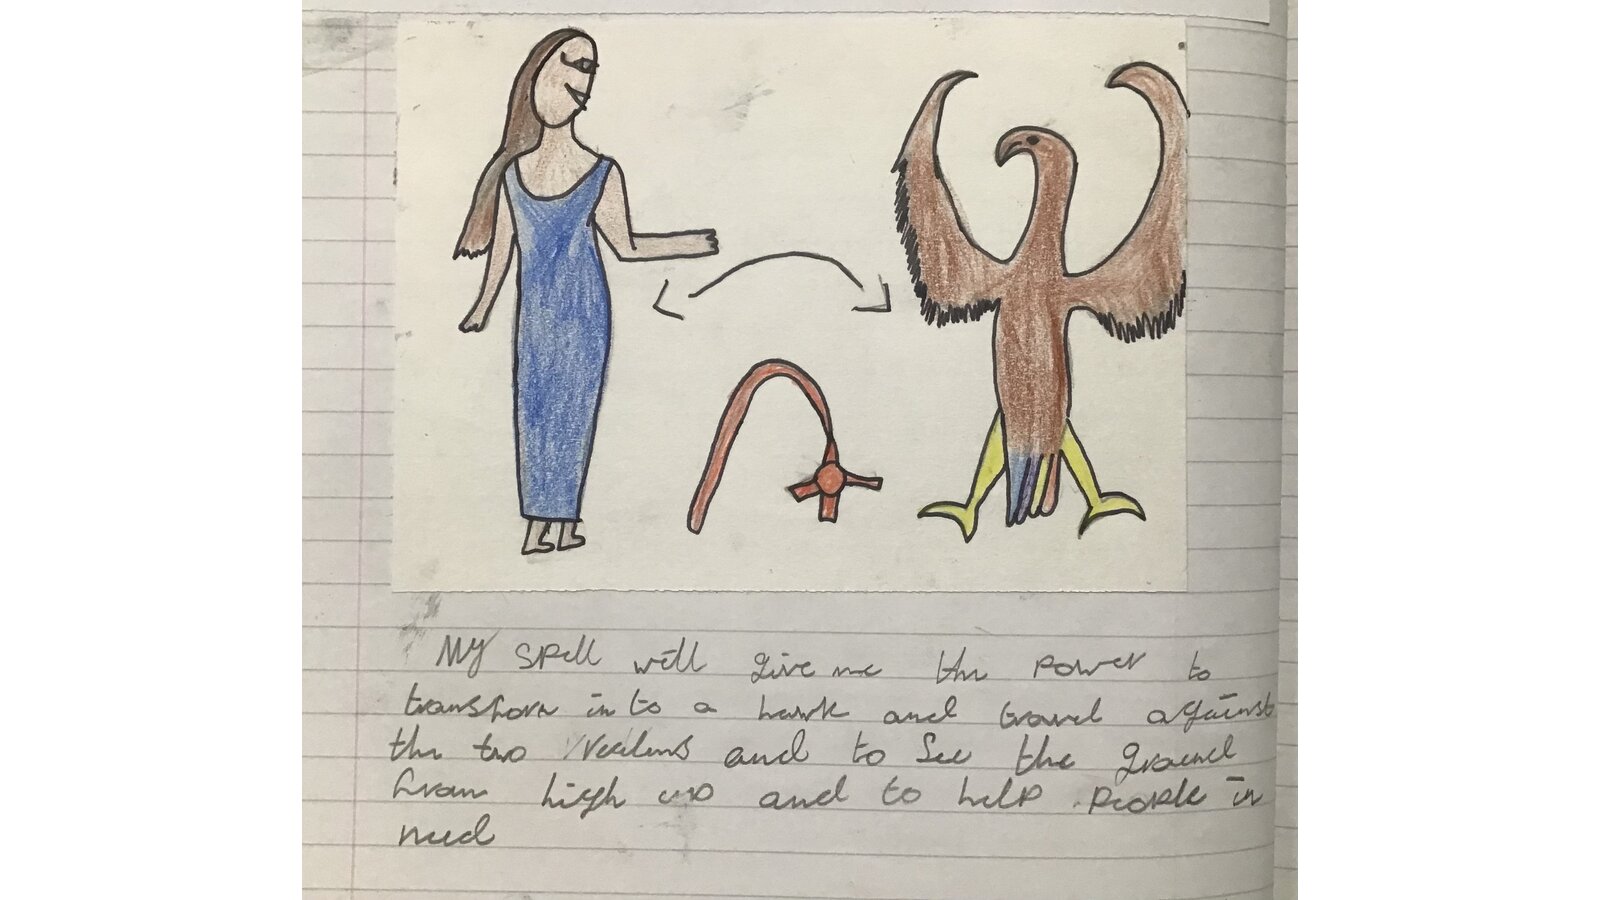 My spell will give me the power to
transform into a hawk and travel against
the two realms and to see the ground
from high up and to help people in
need